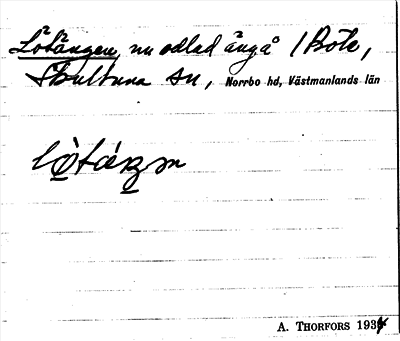 Lötängen, nu odlad äng å Böle,
Skultuna sn, Norrbo hd, Västmanlands län
A. THORFORS 1934